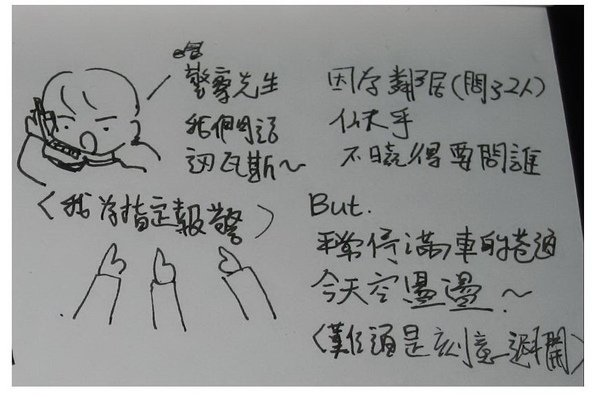 喂
警察先生
我們
瓦斯～
＜我為指定報警＞
因為鄰居(問了2人)
似乎
不曉得要問誰
But.
平常停滿車的巷道
今天空盪盪～
＜難道是刻意避開＞